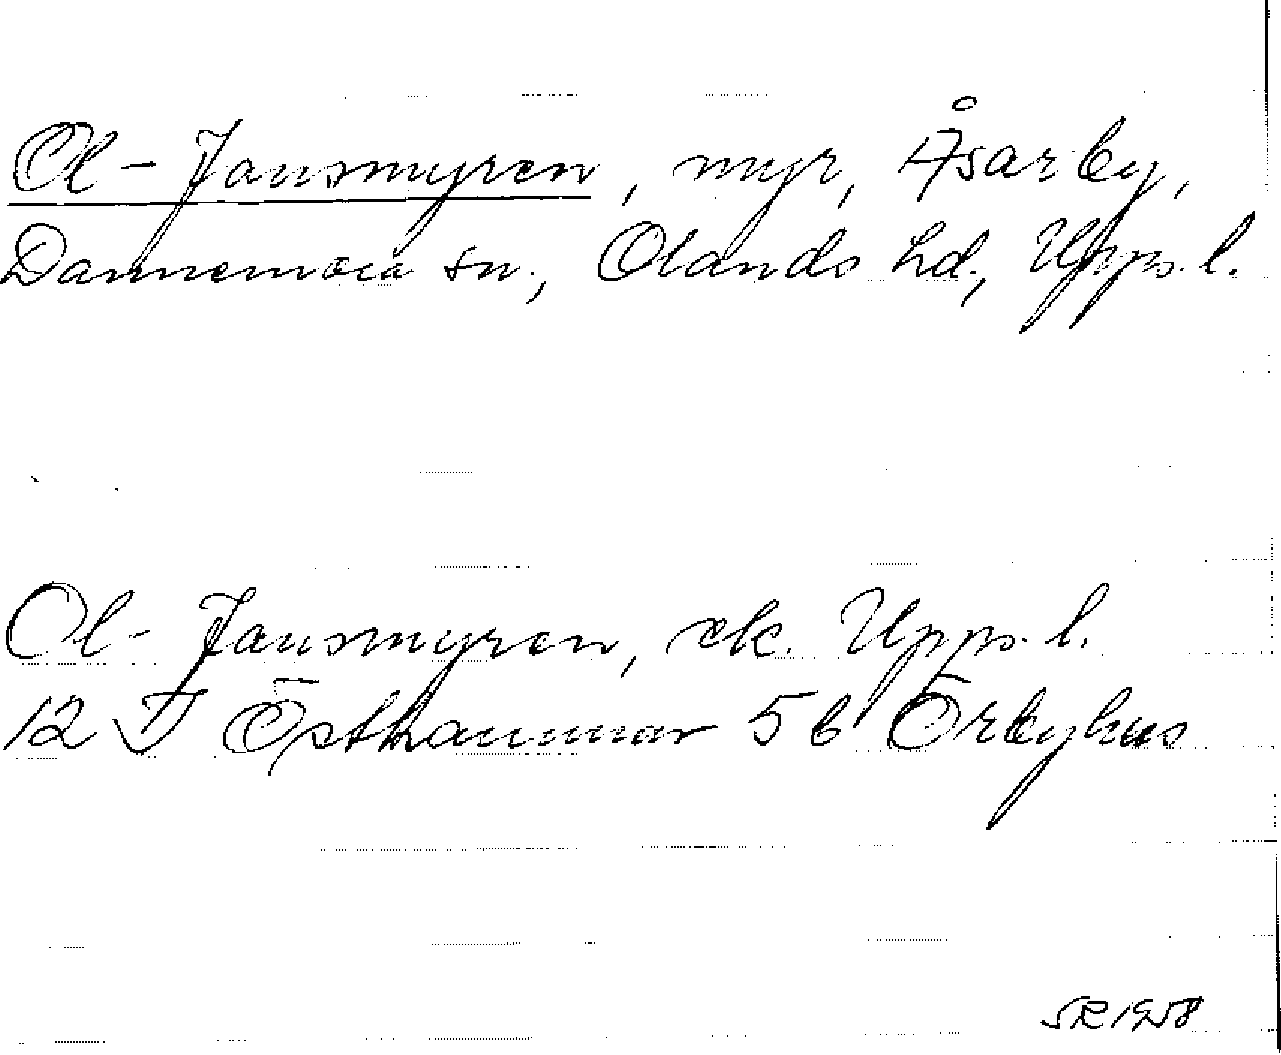 Ol-Jansmyren, myr, Åsarby,
Dannemora sn., Olands hd., Upps. l.
Ol-Jansmyren, ek. Upps. l.
12 I Östhammar 5b Örbyhus
SR 1958